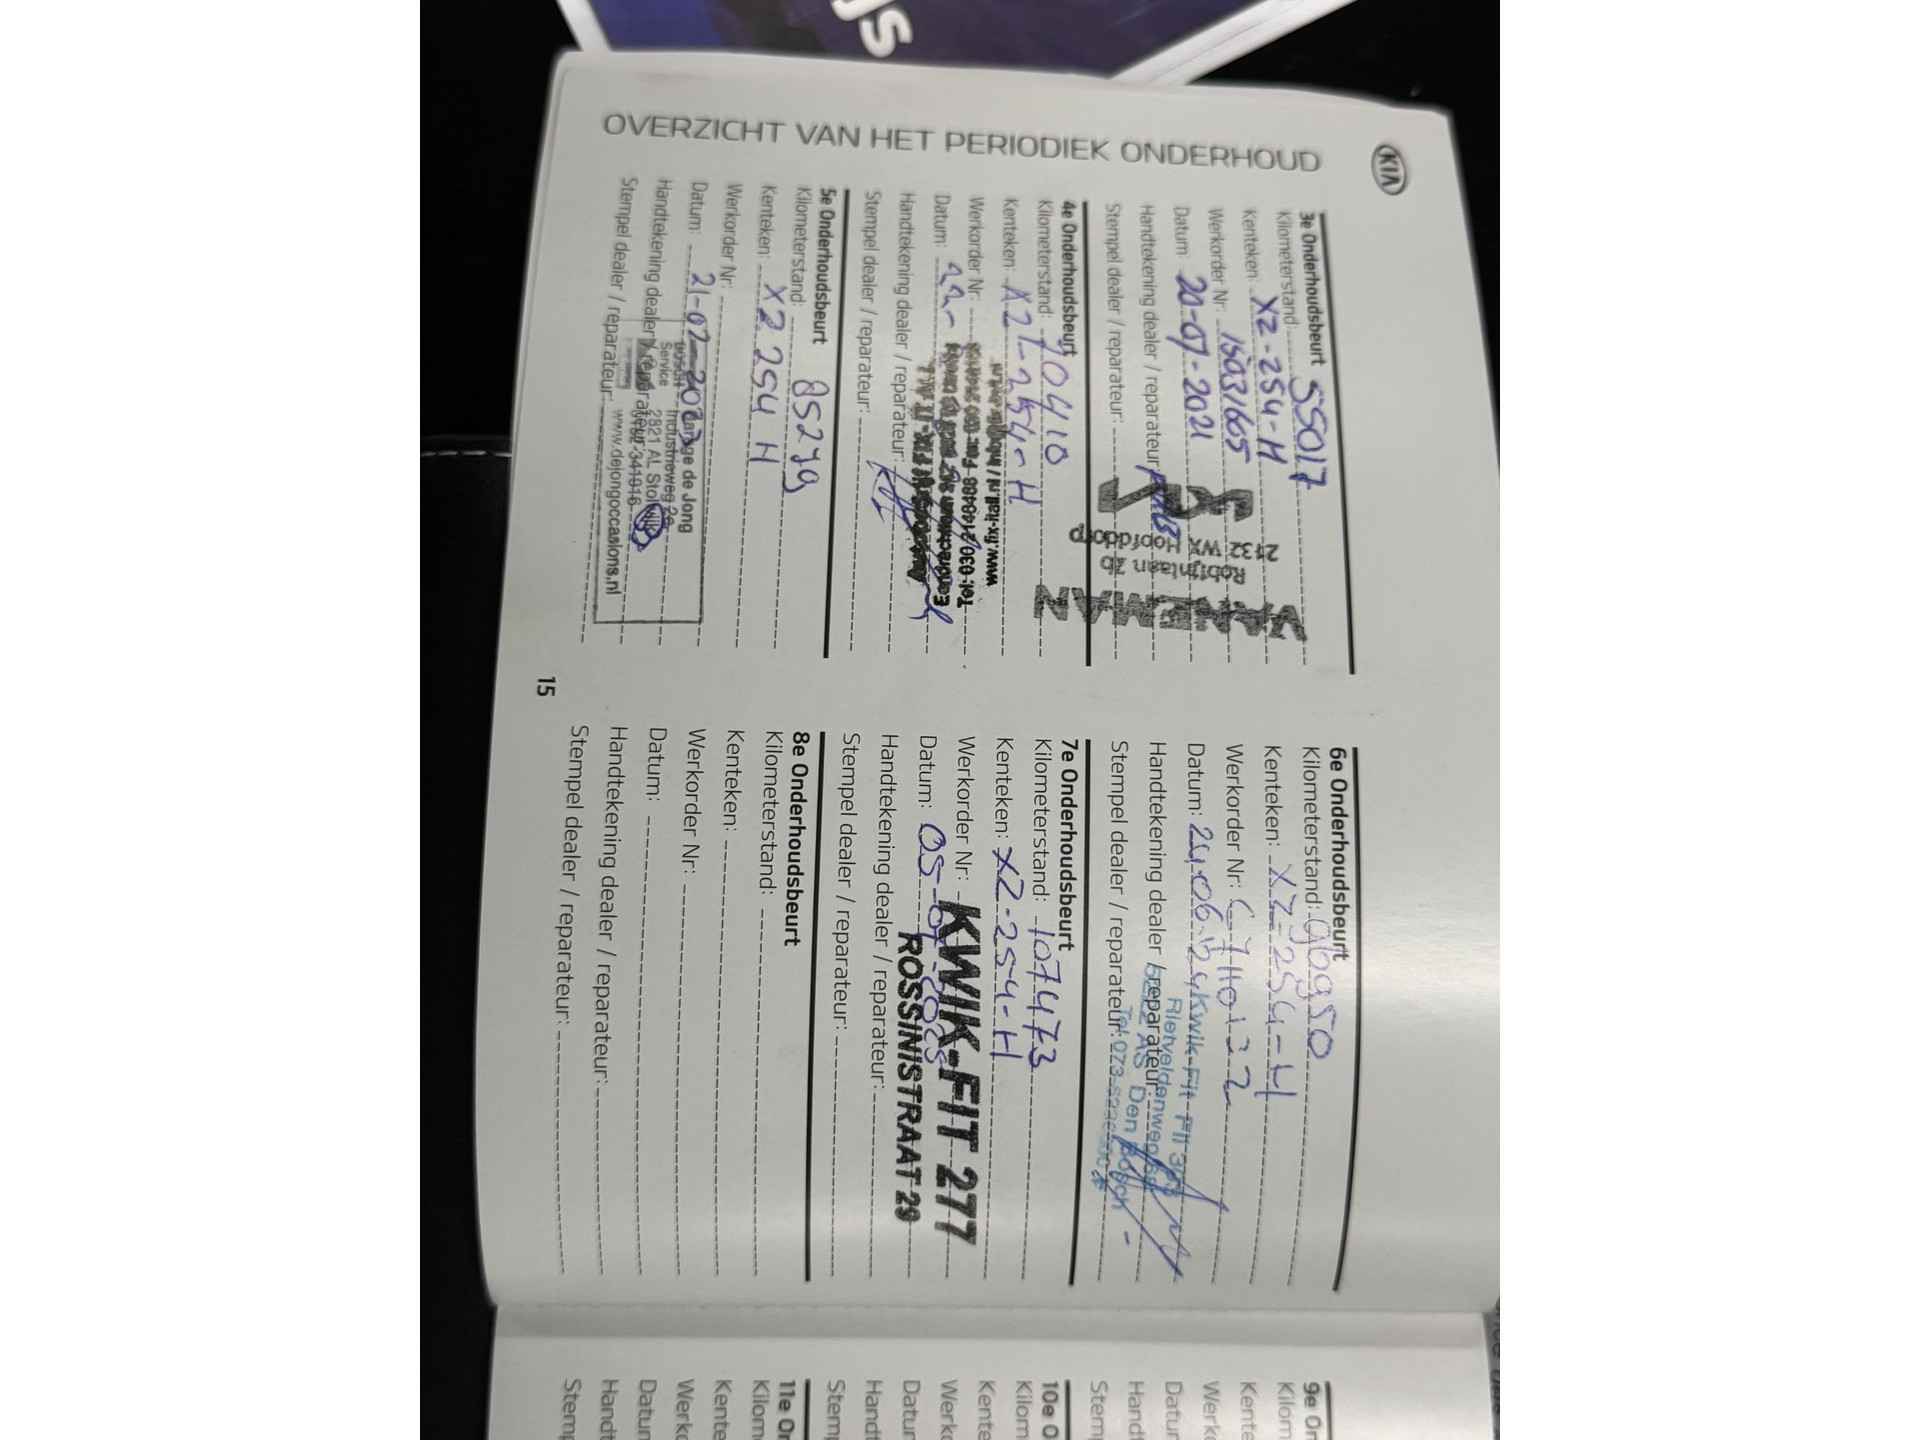 js
KIA
OVERZICHT VAN HET PERIODIEK ONDERHOUD
3e Onderhoudsbeurt
Kilometerstand: 55017
Kenteken: XZ-254-H
Werkorder Nr: 15031665
Datum: 20-07-2021
Handtekening dealer / reparateur:
Stempel dealer / reparateur:
Robijnlaan 2b
2132 WX Hoofddorp
4e Onderhoudsbeurt
Kilometerstand: 70410
Kenteken: XZ-254-H
Werkorder Nr:
Datum:
Handtekening dealer / reparateur:
Stempel dealer / reparateur:
5e Onderhoudsbeurt
Kilometerstand: 85279
Kenteken: XZ 254 H
Werkorder Nr:
Datum: 21-02-2023
Handtekening dealer / reparateur:
Stempel dealer / reparateur:
BOSCH
Service
Garage de Jong
Industrieweg 2a
2821 AL Stolwijk
0182-341916
www.dejongoccasions.nl
15
6e Onderhoudsbeurt
Kilometerstand:
Kenteken: XZ-254-H
Werkorder Nr:
Datum: 24-06-'24
Handtekening dealer / reparateur:
Stempel dealer / reparateur:
Kwik-Fit
Rietveldenweg
5222 AS Den Bosch
7e Onderhoudsbeurt
Kilometerstand: 107473
Kenteken: XZ-254-H
Werkorder Nr:
Datum: 05-07-2025
Handtekening dealer / reparateur:
Stempel dealer / reparateur:
KWIK-FIT 277
ROSSINISTRAAT 29
8e Onderhoudsbeurt
Kilometerstand:
Kenteken:
Werkorder Nr:
Datum:
Handtekening dealer / reparateur:
Stempel dealer / reparateur:
9e On
Kilom
Kente
Werko
Datur
Handt
Stemp
10e O
Kilom
Kente
Werko
Datur
Handt
Stemp
11e On
Kilom
Kente
Werko
Datun
Handt
Stemp